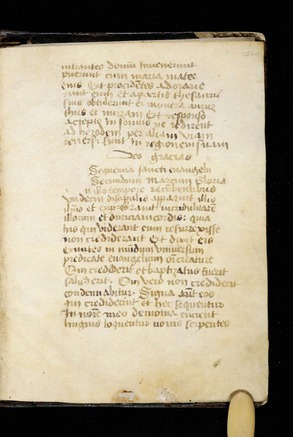 intrantes domum invenerunt
puerum cum maria matre
eius Et procidentes adorave
runt eum Et apertis thesauris
suis obtulerunt ei munera aurum
thus et mirram Et responso
accepto in somnis ne redirent
ad herodem per aliam viam
reversi sunt in regionem suam
Deo gracias
Sequencia sancti evangelii
Secundum marcum Gloria
In illo tempore recumbentibus
undecim discipulis apparuit illis
et exprobravit incredulitatem
illorum et duriciam cordis quia
his qui viderant eum resurrexisse
non crediderant Et dixit eis
Euntes in mundum universum
predicate evangelium omni creature
Qui crediderit et baptizatus fuerit
salvus erit Qui vero non crediderit
condemnabitur Signa autem eos
qui crediderint et hec sequentur
In nomine meo demonia eicient
linguis loquentur novis serpentes